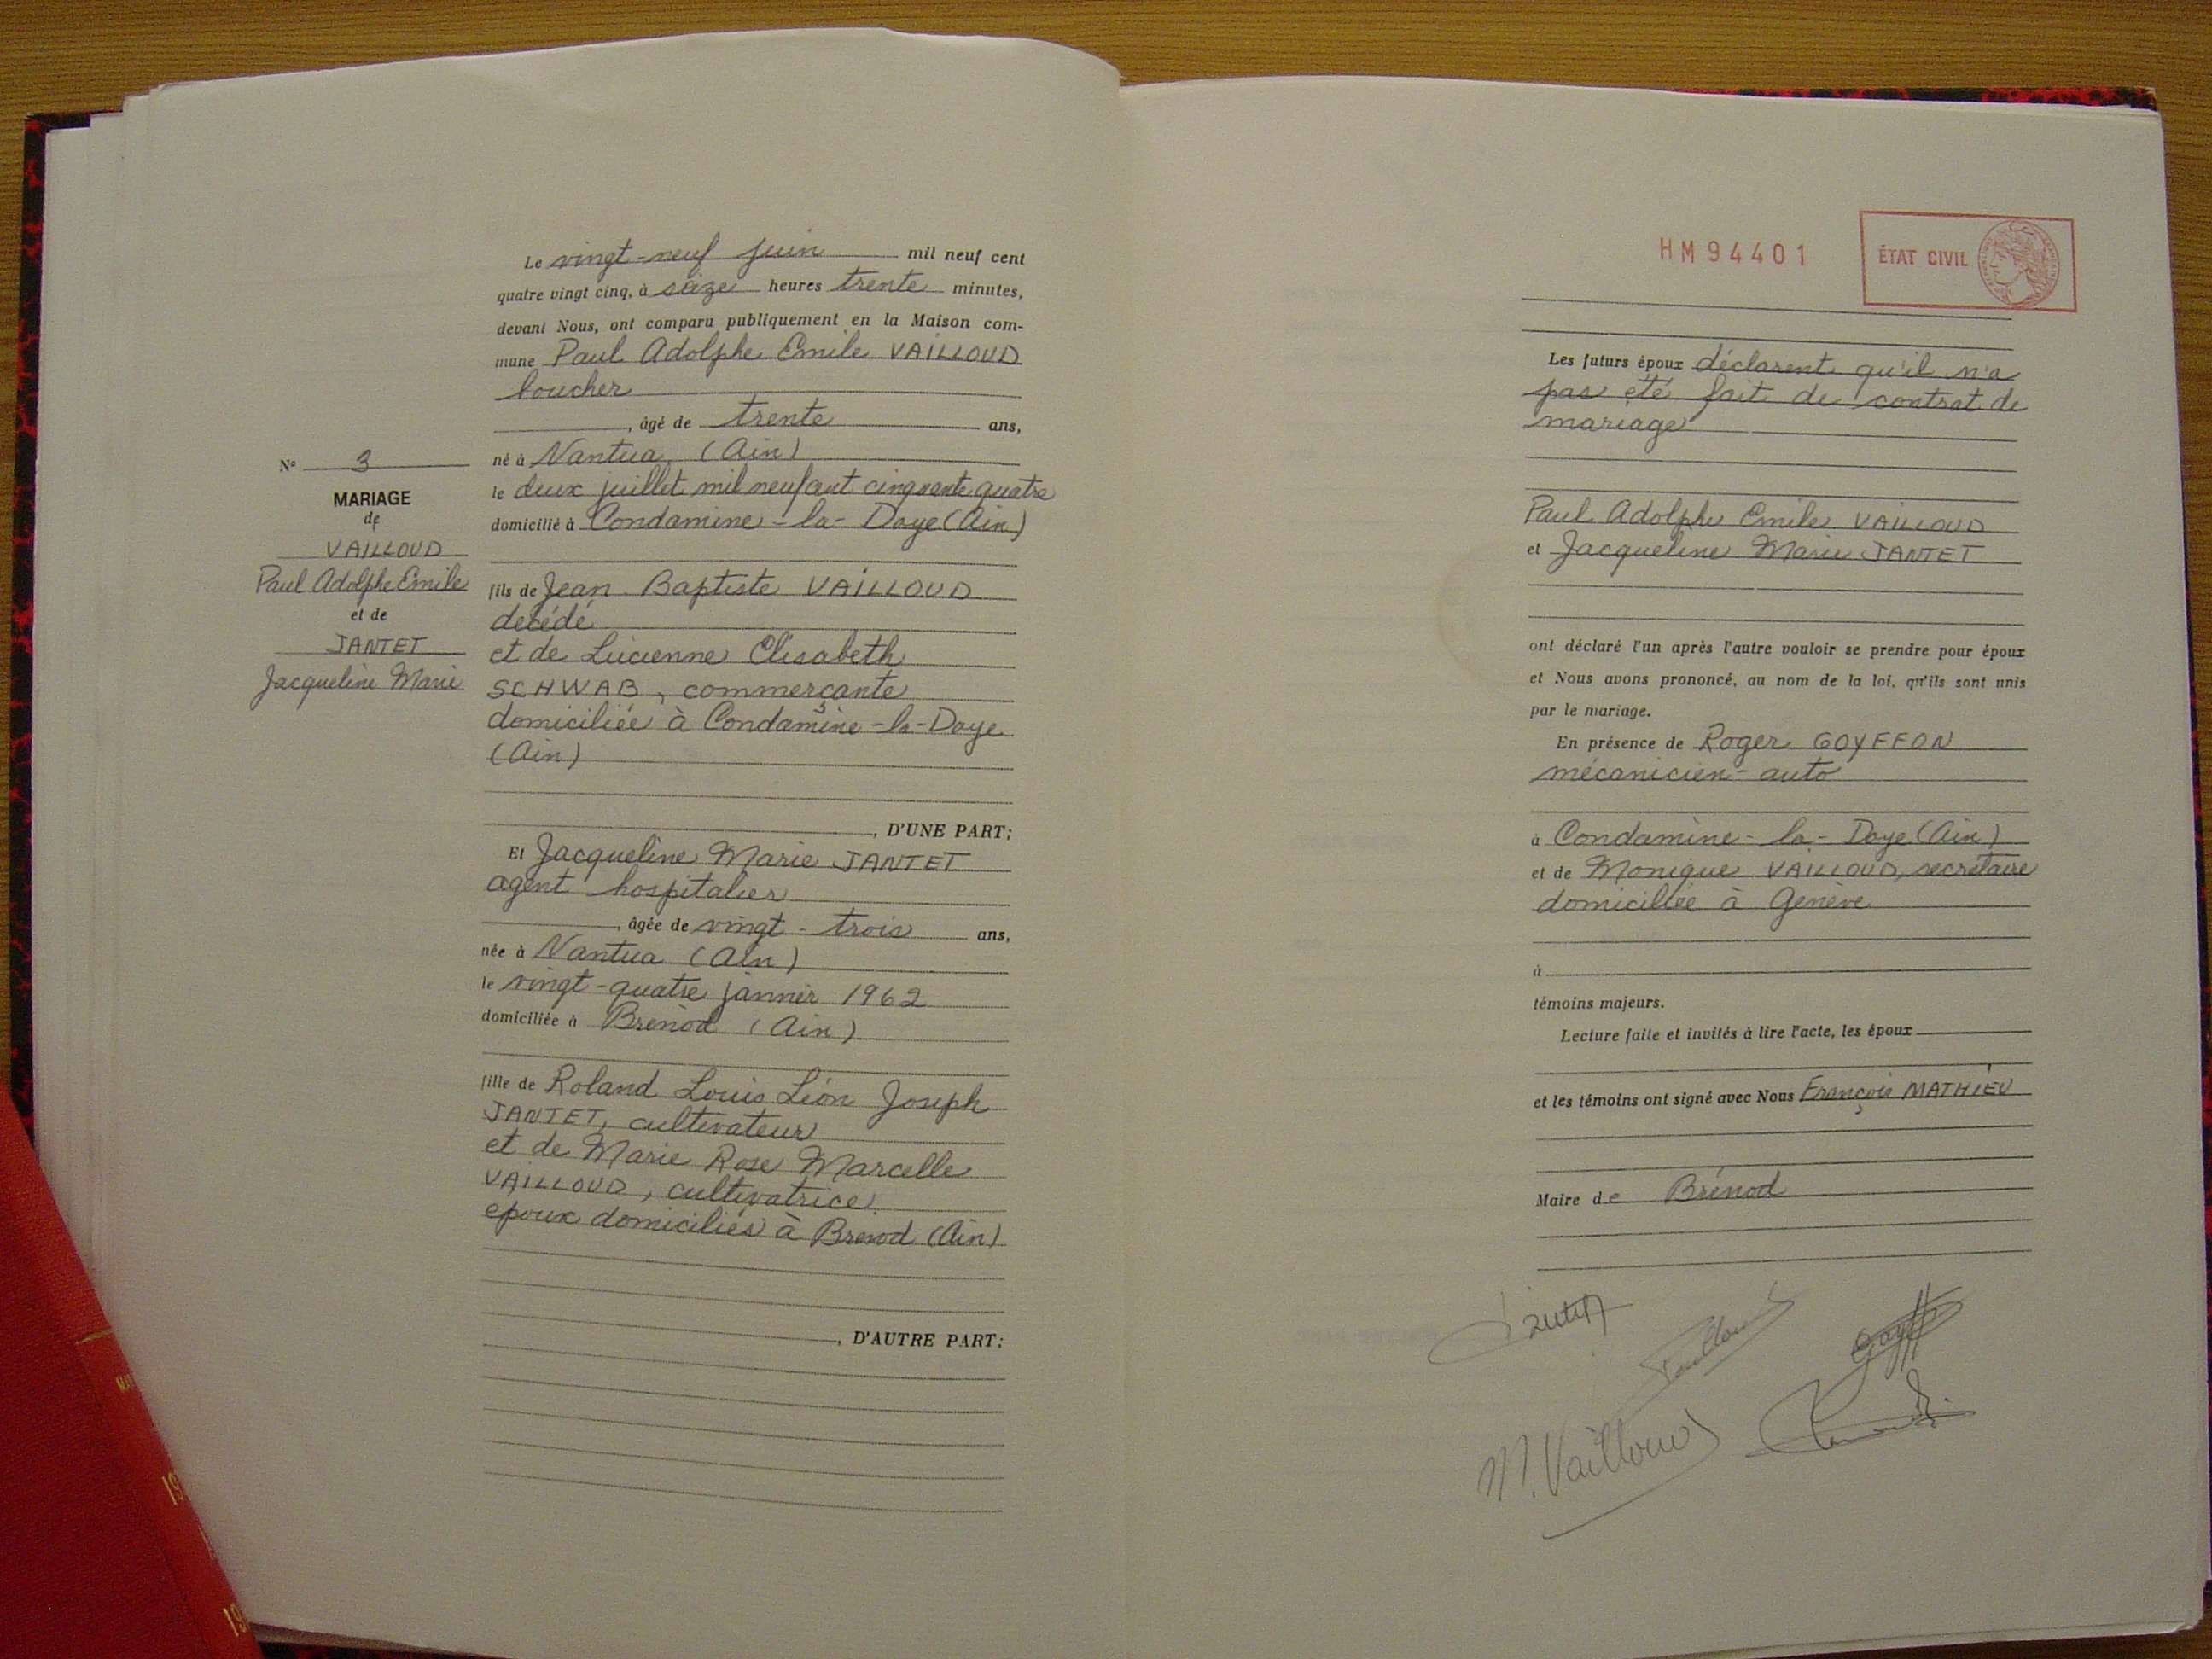 Le vingt-neuf juin mil neuf cent
quatre vingt cinq, à seize heures trente minutes,
devant Nous, ont comparu publiquement en la Maison com-
mune Paul Adolphe Emile VAILLOUD
boucher
, âgé de trente ans,
né à Nantua (Ain)
le deux juillet mil neuf cent cinquante quatre
domicilié à Condamine-la-Doye (Ain)
fils de Jean Baptiste VAILLOUD
décédé
et de Lucienne Elisabeth
SCHWAB, commerçante
domiciliée à Condamine-la-Doye
(Ain)
, D'UNE PART;
Et Jacqueline Marie JANTET
agent hospitalier
, âgée de vingt-trois ans,
née à Nantua (Ain)
le vingt-quatre janvier 1962
domiciliée à Brénod (Ain)
fille de Roland Louis Léon Joseph
JANTET, cultivateur
et de Marie Rose Marcelle
VAILLOUD, cultivatrice
époux domiciliés à Brénod (Ain)
, D'AUTRE PART;
N° 3
MARIAGE
de
VAILLOUD
Paul Adolphe Emile
et de
JANTET
Jacqueline Marie
HM94401
ÉTAT CIVIL
Les futurs époux déclarent qu'il n'a
pas été fait de contrat de
mariage
Paul Adolphe Emile VAILLOUD
et Jacqueline Marie JANTET
ont déclaré l'un après l'autre vouloir se prendre pour époux
et Nous avons prononcé, au nom de la loi, qu'ils sont unis
par le mariage.
En présence de Roger GOYFFON
mécanicien-auto
à Condamine-la-Doye (Ain)
et de Monique VAILLOUD, secrétaire
domiciliée à Genève
à
témoins majeurs.
Lecture faite et invités à lire l'acte, les époux
et les témoins ont signé avec Nous François MATHIEU
Maire de Brénod
M. Vailloud